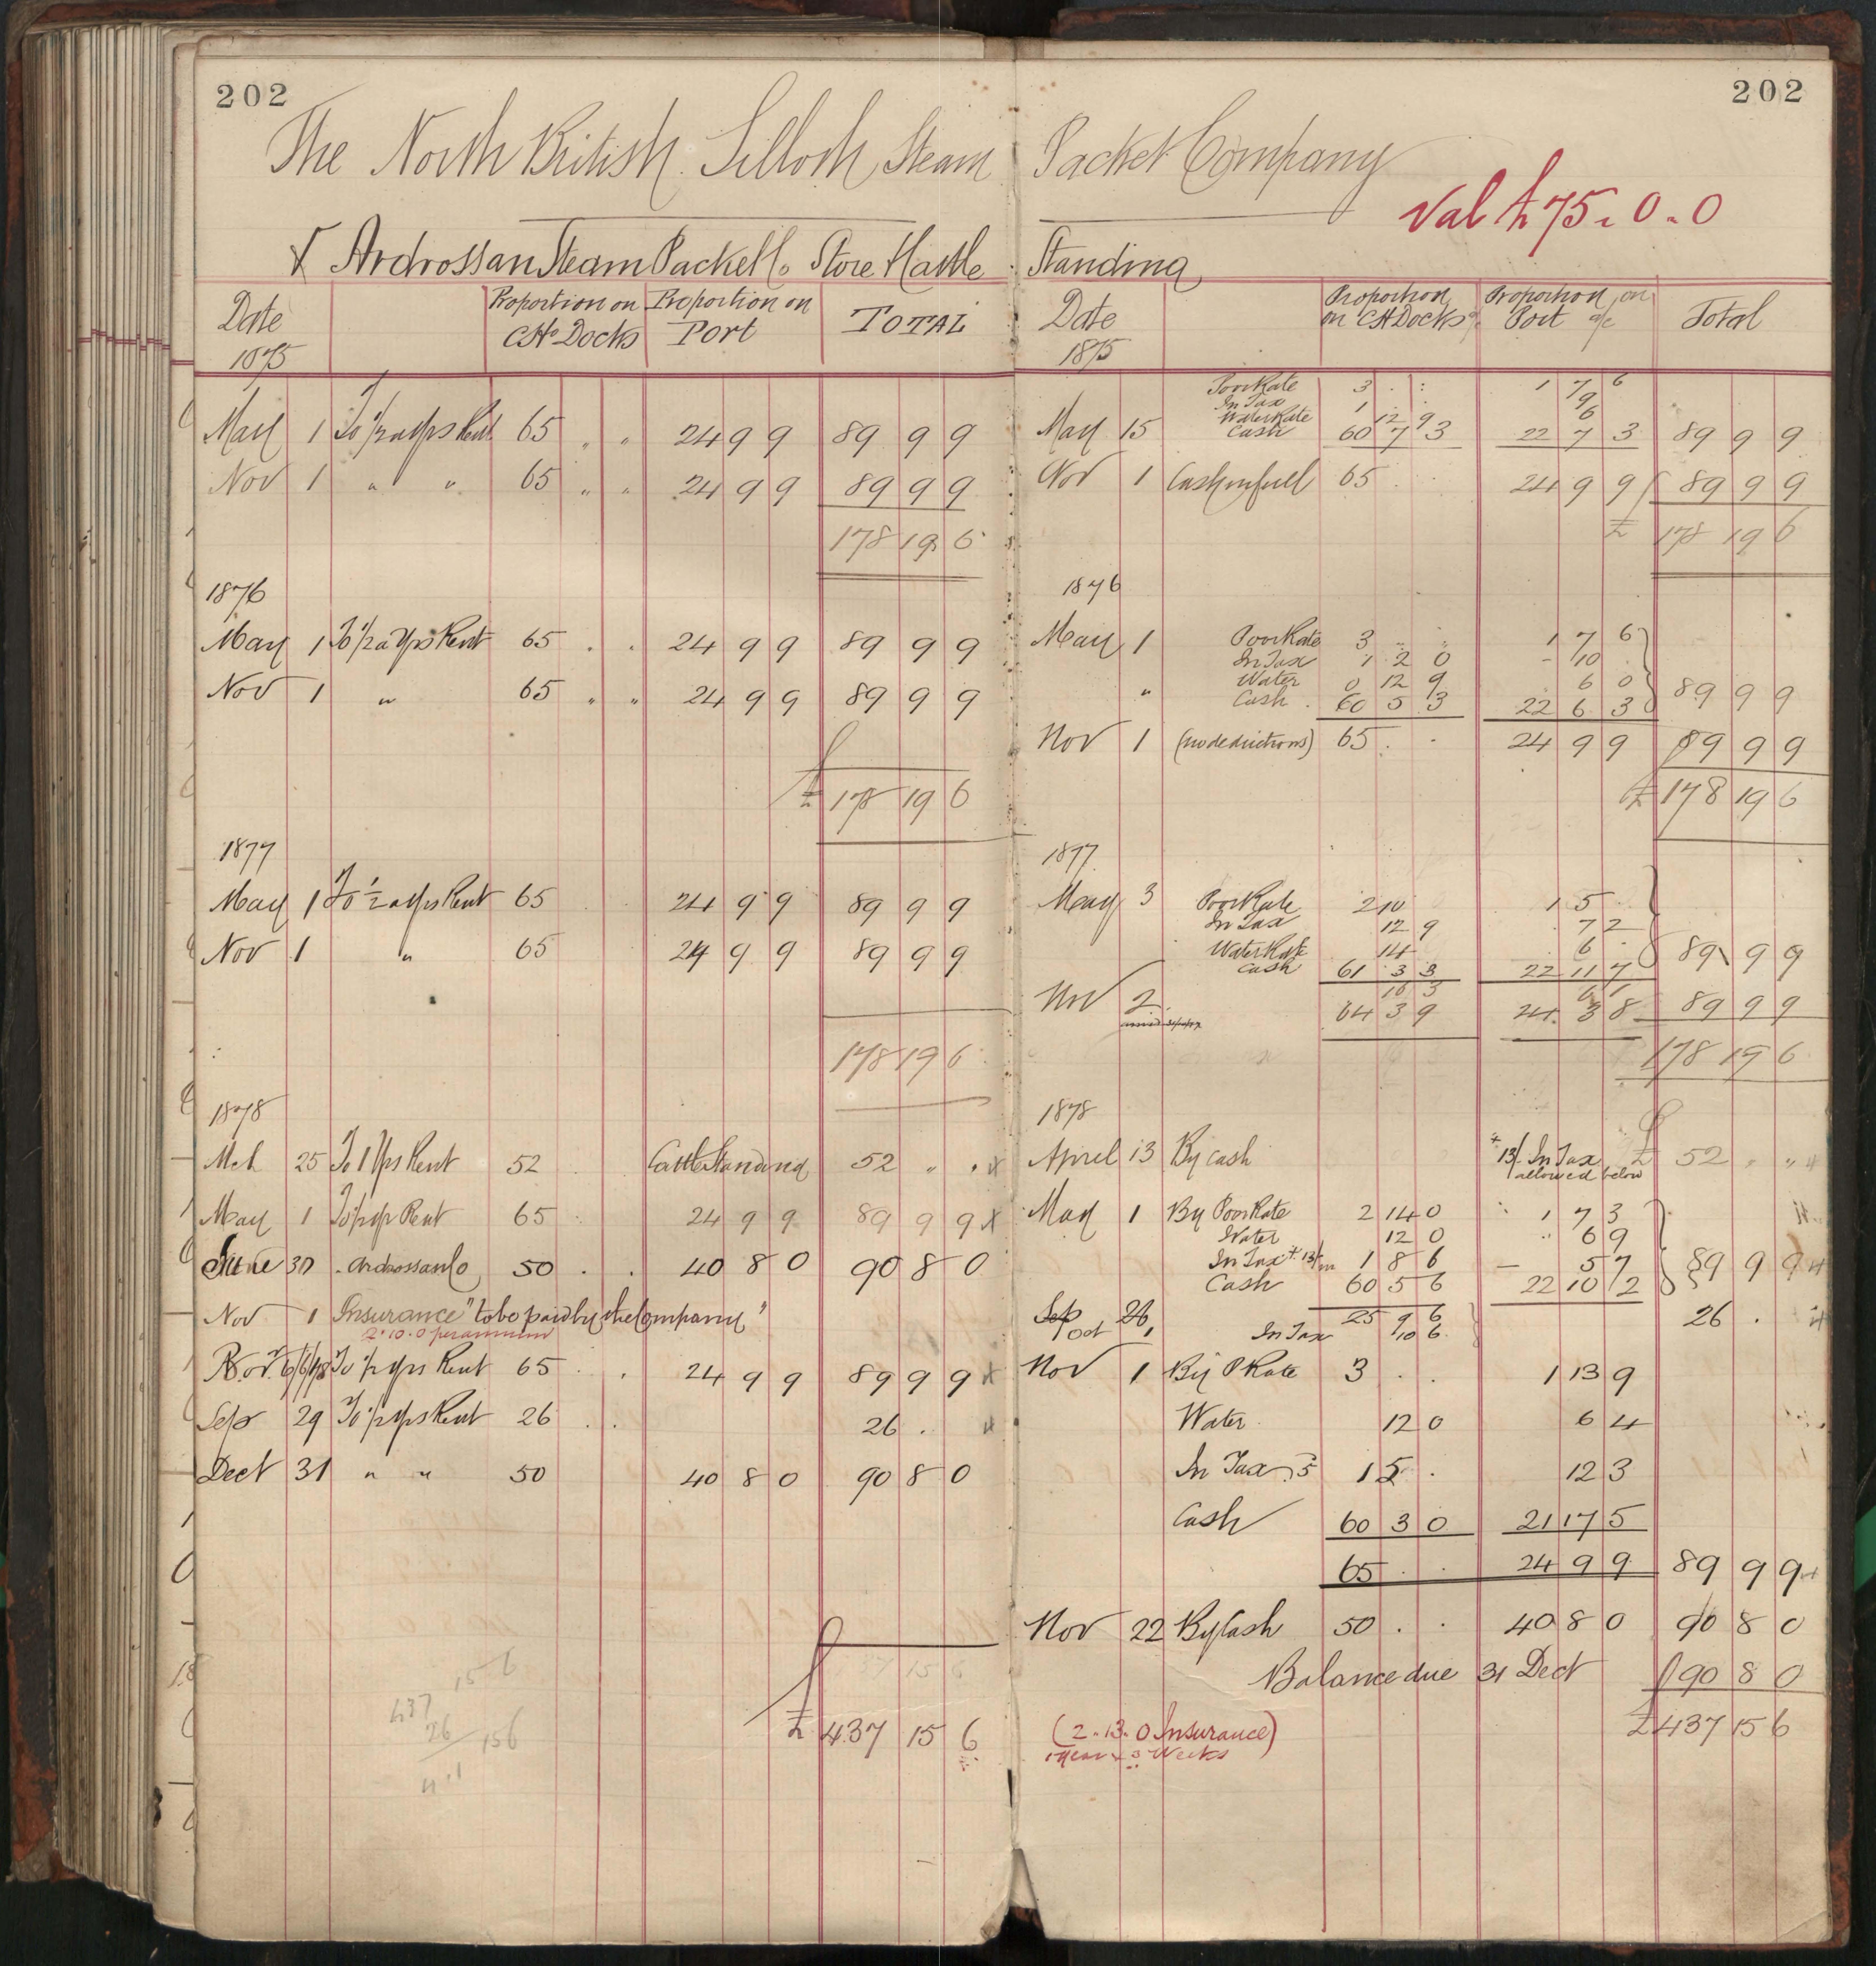 202
The North British Silloth Steam
& Ardrossan Steam Packet Co Store & Cattle
Date 1875 Proportion on CHo Docks Proportion on Port TOTAL
May 1 To 1/2 a yrs Rent 65 " " 24 9 9 89 9 9
Nov 1 " " 65 " " 24 9 9 89 9 9
178 19 6
1876
May 1 To 1/2 a Yrs Rent 65 . . 24 9 9 89 9 9
Nov 1 " 65 " " 24 9 9 89 9 9
£ 178 19 6
1877
May 1 To 1/2 a yrs Rent 65 24 9 9 89 9 9
Nov 1 " 65 24 9 9 89 9 9
178 19 6
1878
Mch 25 To 1 Yrs Rent 52 Cattle Standing 52 " "
May 1 To 1/2 yr Rent 65 24 9 9 89 9 9
June 30 Ardrossan Co 50 . . 40 8 0 90 8 0
Nov 1 Insurance "to be paid by the Company"
2.10.0 per annum
Nov To 1/2 yrs Rent 65 . . 24 9 9 89 9 9
Sep 29 To 1/2 yrs Rent 26 . . 26 .
Dect 31 " " 50 40 8 0 90 8 0
£ 437 15 6
15 6
437
26
156
202
Packet Company
Val £75 . 0 . 0
Standing
Date 1875 Proportion on CH Docks a/c Proportion on Port a/c Total
Poor Rate 3 . : 1 7 6
In Tax 1 . : 9
Water Rate 12 9 6
May 15 Cash 60 7 3 22 7 3 89 9 9
Nov 1 Cash in full 65 . . 24 9 9 89 9 9
£ 178 19 6
1876
May 1 Poor Rate 3 " " 1 7 6
In Tax 1 2 0 - 10 .
" Water 0 12 9 6 0 89 9 9
Cash . 60 5 3 22 6 3
Nov 1 (no deductions) 65 . . 24 9 9 89 9 9
£ 178 19 6
1877
May 3 Poor Rate 2 10 1 5
In Tax 12 9 7 2
Water Rate 14 6 . 89 9 9
Cash 61 3 3 22 11 7
16 3 6 1
Nov 2 64 3 9 24 3 8 89 9 9
178 19 6
1878
April 13 By Cash + 13/- In Tax allowed below £ 52 " "
May 1 By Poor Rate 2 14 0 1 7 3
Water 12 0 6 9
In Tax + 13/- 1 8 6 — 5 7 89 9 9
Cash 60 5 6 22 10 2
Sep 26 25 9 6 26 .
Oct 1 In Tax 10 6
Nov 1 By P Rate 3 . . 1 13 9
Water 12 0 6 4
In Tax 5 1 5 . 12 3
Cash 60 3 0 21 17 5
65 . . 24 9 9 89 9 9
Nov 22 By Cash 50 . . 40 8 0 90 8 0
Balance due 31 Dect 90 8 0
£ 437 15 6
(2 . 13 . 0 Insurance)
1 Year & 3 Weeks